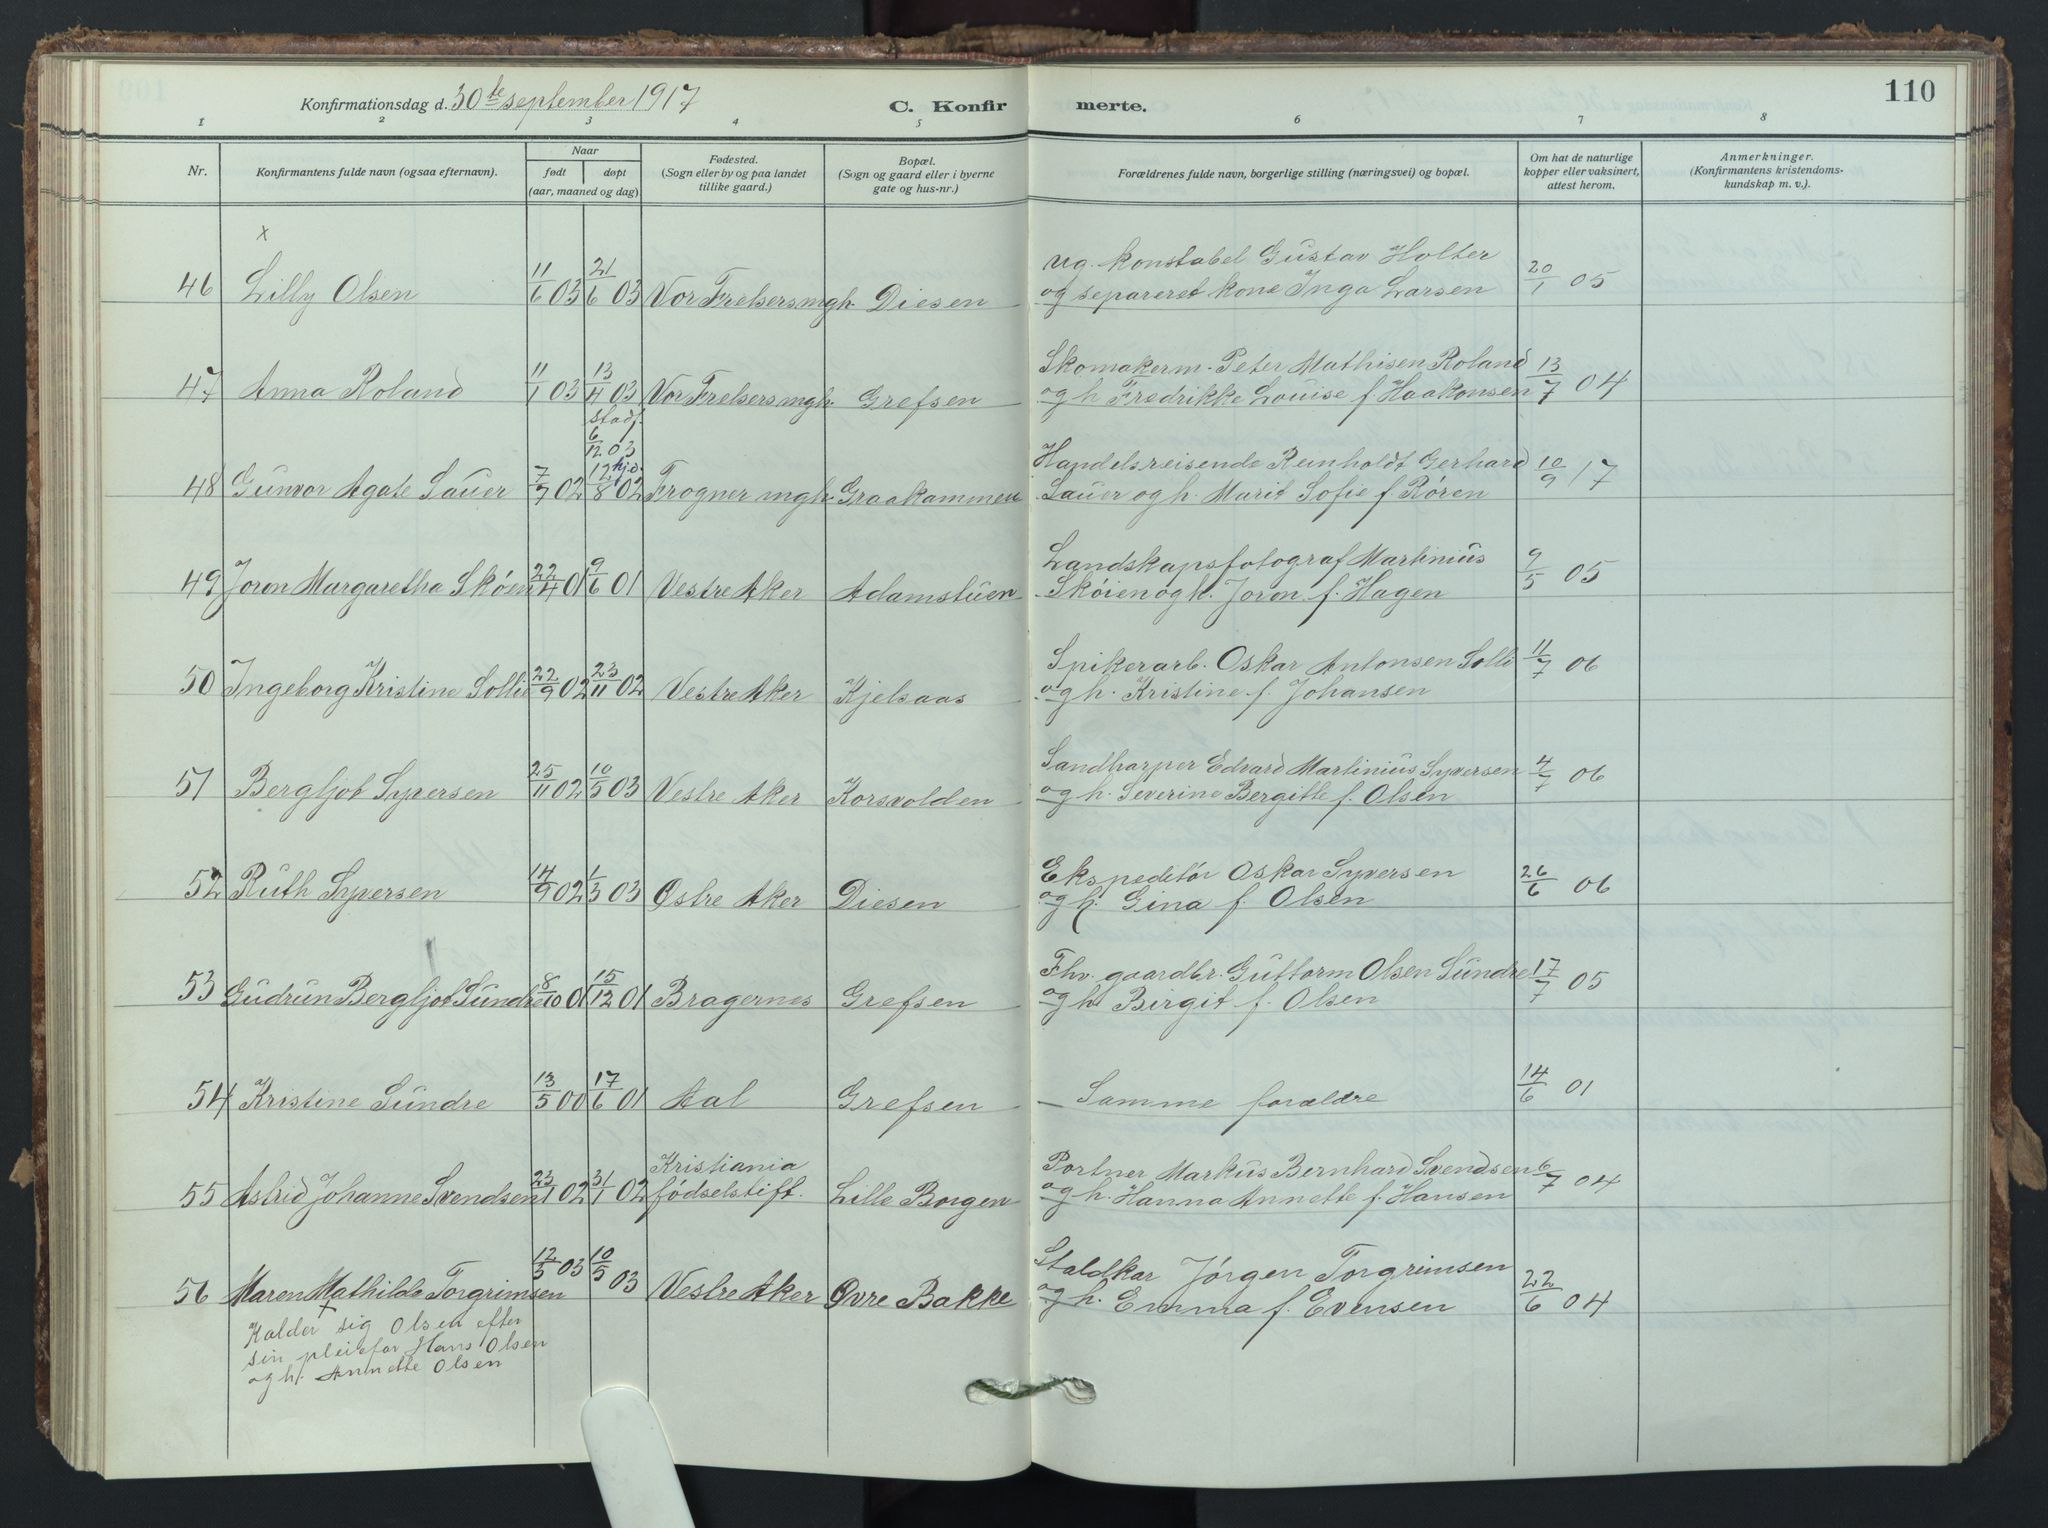 110
Konfirmationsdag d. 30te september 1917
C. Konfirmerte.
1 2 3 4 5 6 7 8
Nr.
Konfirmantens fulde navn (ogsaa efternavn).
Naar
født døpt
(aar, maaned og dag)
Fødested.
(Sogn eller by og paa landet
tillike gaard.)
Bopæl.
(Sogn og gaard eller i byerne
gate og hus-nr.)
Forældrenes fulde navn, borgerlige stilling (næringsvei) og bopæl.
Om hat de naturlige
kopper eller vaksinert,
attest herom.
Anmerkninger.
(Konfirmantens kristendoms-
kundskap m. v.)
x
ug. konstabel Gustav Holter
46 Lilly Olsen 11/6 03 21/6 03 Vor Frelsersmgh. Diesen og separeret kone Inga Larsen 20/1 05
Skomakerm. Peter Mathisen Roland
47 Anna Roland 11/1 03 13/4 03 Vor Frelsersmgh. Grefsen og h. Fredrikke Louise f. Haakonsen 13/7 04
stadf.
6/12 03
hjd.
Handelsreisende Reinholdt Gerhard
48 Gunvor Agate Sauer 7/7 02 12/8 02 Frogner mgh. Graakammen Sauer og h. Marit Sofie f. Røren 10/9 17
Landskapsfotograf Martinius
49 Joron Margaretha Skøien 22/4 01 9/6 01 Vestre Aker Adamstuen Skøien og h. Joron f. Hagen 9/5 05
Spikerarb. Oskar Antonsen Solli
50 Ingeborg Kristine Sollie 22/9 02 23/11 02 Vestre Aker Kjelsaas og h. Kristine f. Johansen 11/7 06
Sandharper Edvard Martinius Syversen
51 Bergljot Syversen 25/11 02 10/5 03 Vestre Aker Korsvolden og h. Severine Bergitte f. Olsen 4/7 06
Ekspeditør Oskar Syversen
52 Ruth Syversen 14/9 02 1/3 03 Østre Aker Diesen og h. Gina f. Olsen 26/6 06
Fhv. gaardbr. Guttorm Olsen Sundre
53 Gudrun Bergljot Sundre 8/10 01 15/12 01 Bragernes Grefsen og h. Birgit f. Olsen 17/7 05
54 Kristine Sundre 13/5 00 17/6 01 Aal Grefsen Samme forældre 14/6 01
Kristiania
Portner Markus Bernhard Svendsen
55 Astrid Johanne Svendsen 23/1 02 31/1 02 fødselstift. Lille Borgen og h. Hanna Annette f. Hansen 6/7 04
Staldkar Jørgen Torgrimsen
56 Maren Mathilde Torgrimsen 12/3 03 10/5 03 Vestre Aker Øvre Bakke og h. Emma f. Evensen 22/6 04
x
Kalder sig Olsen efter
sin pleiefar Hans Olsen
og h. Annette Olsen